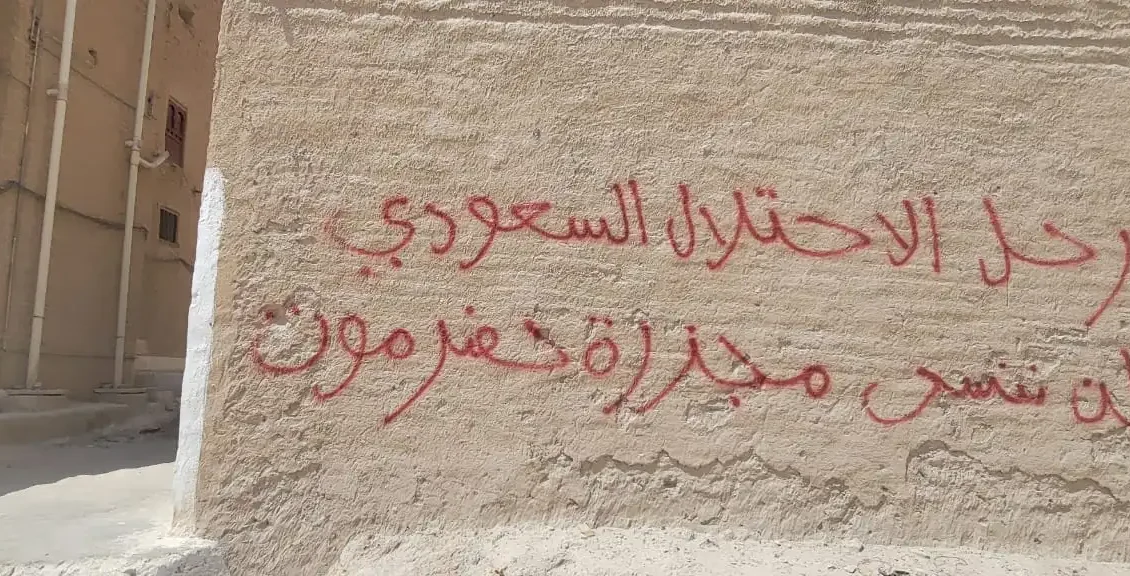 رحل الاحتلال السعودي
لن ننسى مجزرة حضرموت